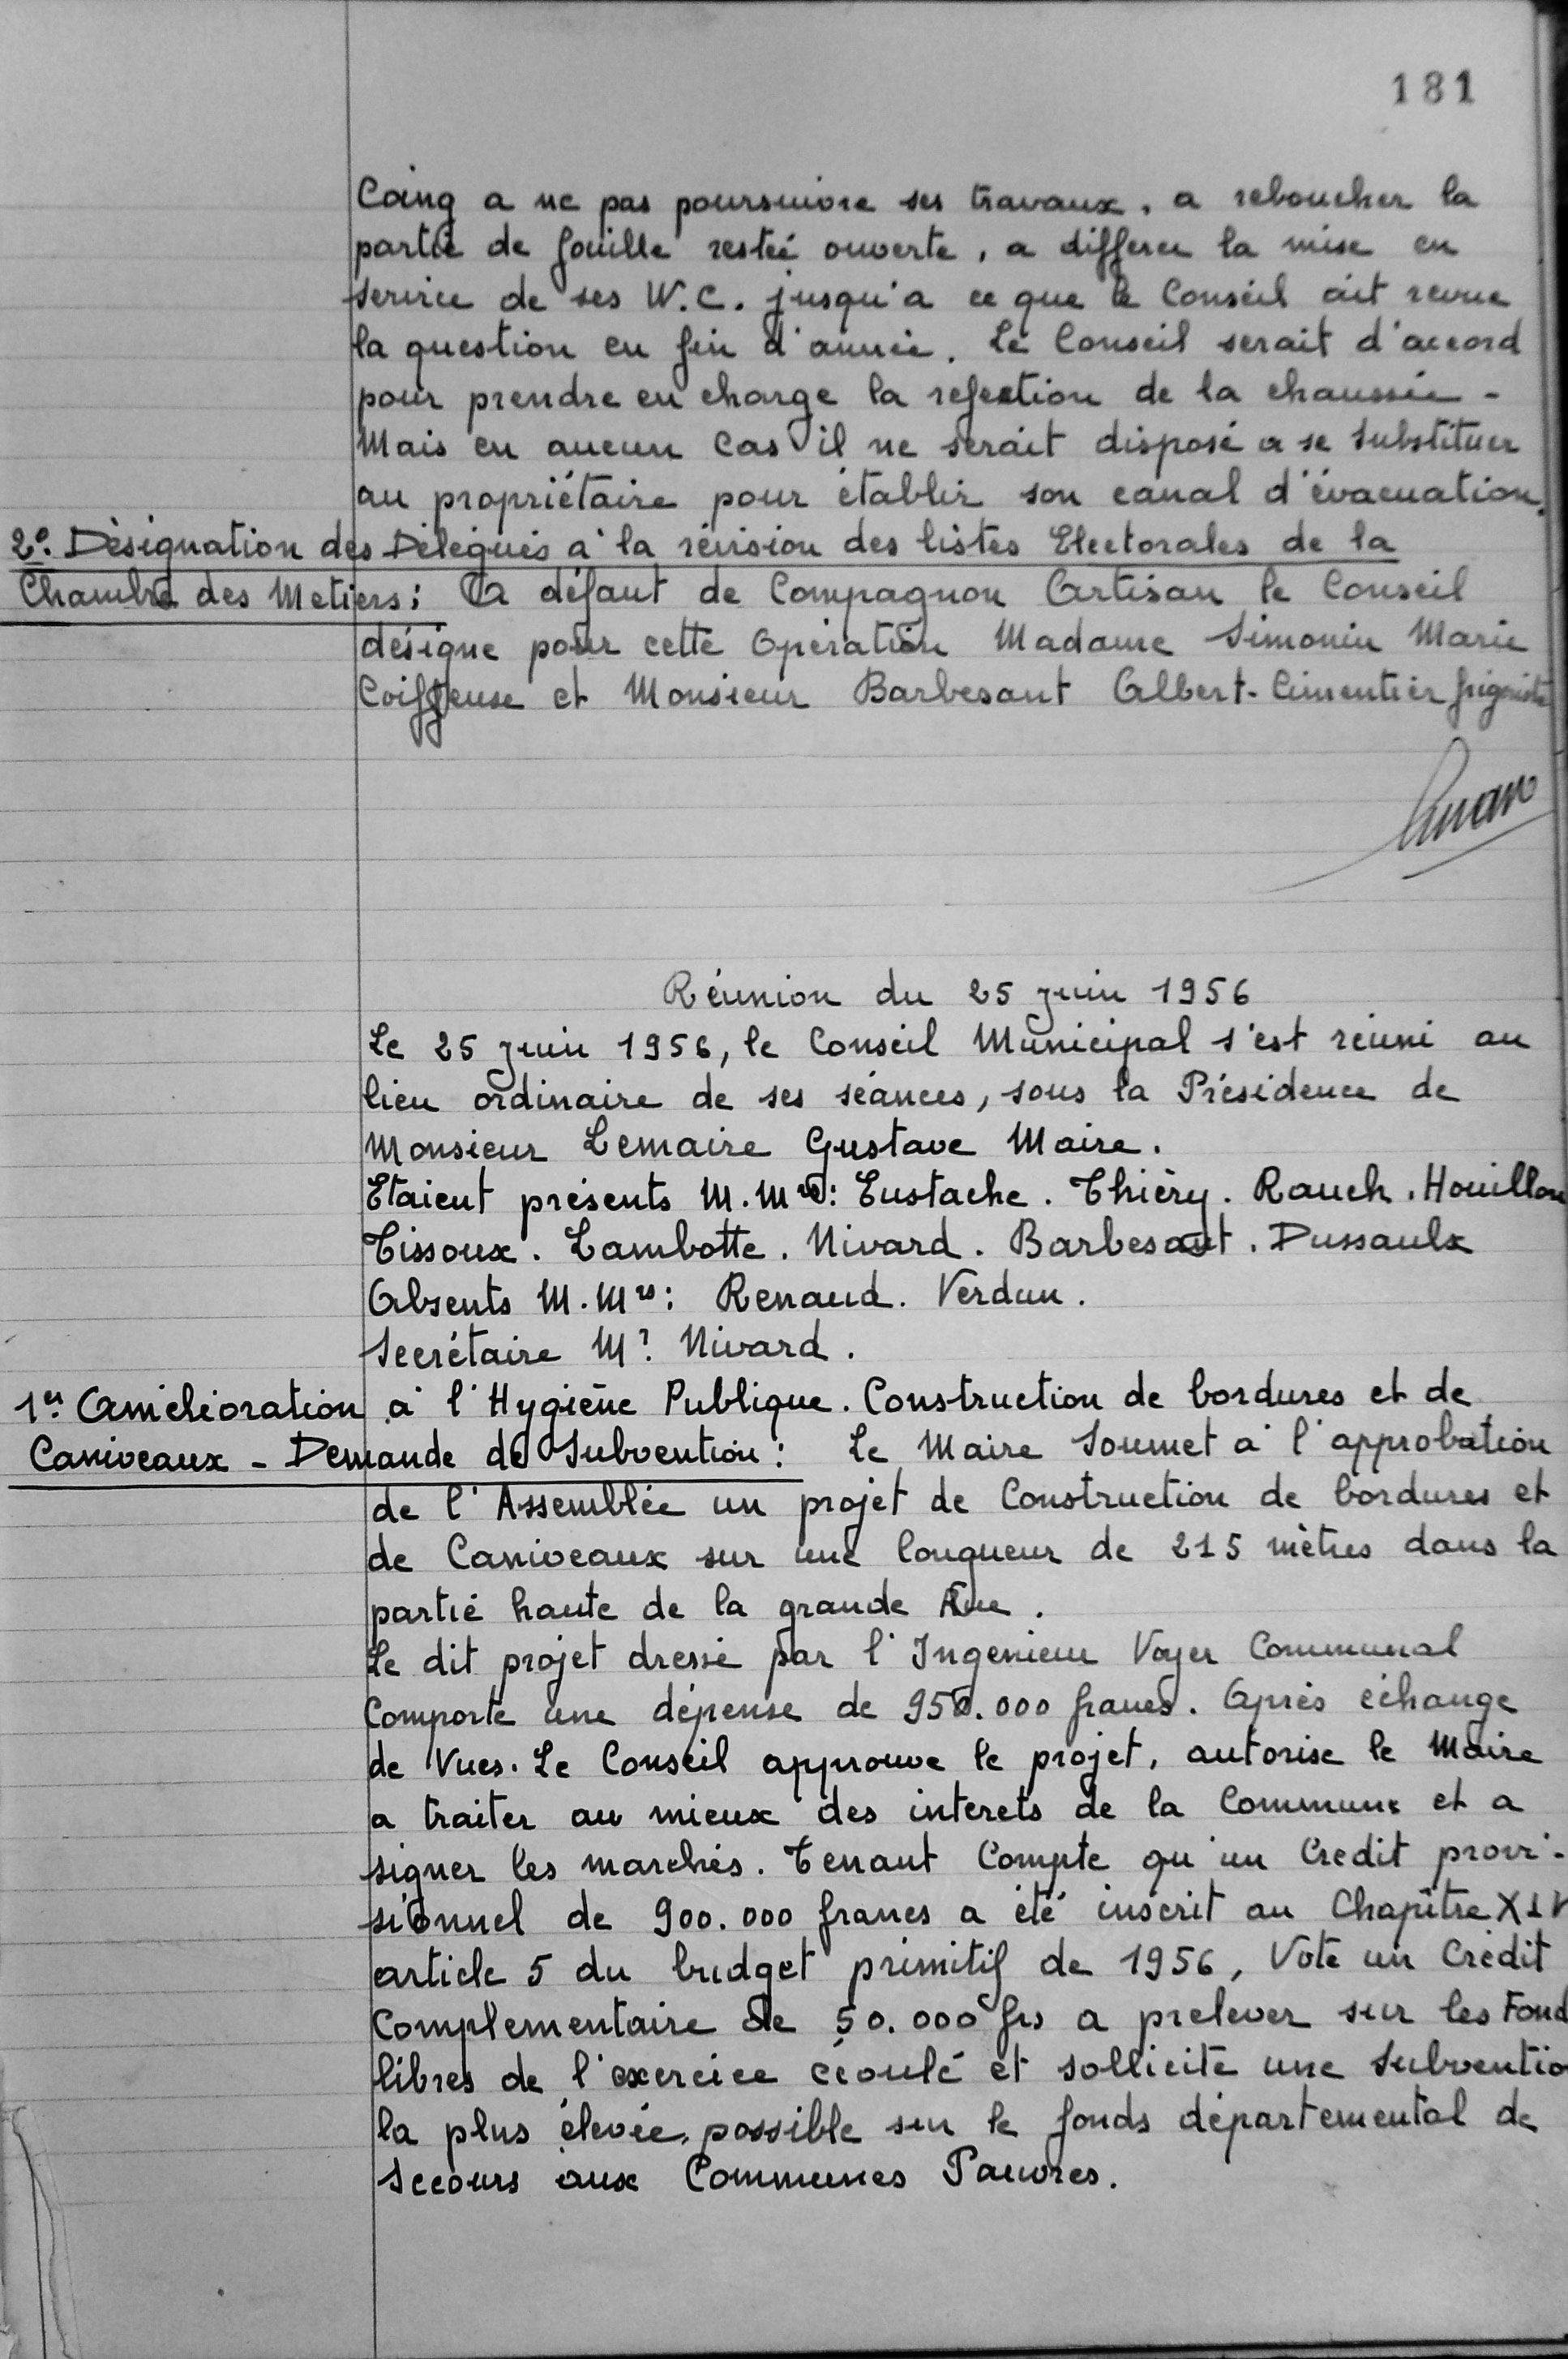 181
Coinq a ne pas poursuivre ses travaux, a reboucher la
partie de fouille restée ouverte, a differer la mise en
service de ses W.C. jusqu'a ce que le Conseil ait revue
la question en fin d'année. Le Conseil serait d'accord
pour prendre en charge la refection de la chaussée -
Mais en aucun Cas il ne serait disposé a se substituer
au propriétaire pour établir son canal d'évacuation.
2°. Désignation des Délégués à la révision des listes Electorales de la
Chambre des Metiers: A défaut de Compagnon Artisan le Conseil
désigne pour cette Opération Madame Simonin Marie
Coiffeuse et Monsieur Barbesant Albert - Cimentier
Réunion du 25 juin 1956
Le 25 juin 1956, le Conseil Municipal s'est réuni au
lieu ordinaire de ses séances, sous la Présidence de
Monsieur Lemaire Gustave Maire.
Etaient présents M.Mrs: Eustache. Thiéry. Rauch. Houillon
Tissoux. Lambotte. Nivard. Barbesant. Dussaulx
Absents M.Mrs: Renaud. Verdun.
Secrétaire Mr. Nivard.
1er Amélioration à l'Hygiène Publique. Construction de bordures et de
Caniveaux - Demande de Subvention: Le Maire Soumet à l'approbation
de l'Assemblée un projet de Construction de bordures et
de Caniveaux sur une longueur de 215 mètres dans la
partie haute de la grande Rue.
Le dit projet dressé par l'Ingenieur Voyer Communal
Comporte une dépense de 950.000 francs. Après échange
de Vues. Le Conseil approuve le projet, autorise le Maire
a traiter au mieux des interets de la Commune et a
signer les marchés. Tenant Compte qu'un Credit provi-
sionnel de 900.000 francs a été inscrit au Chapître XIV
article 5 du budget primitif de 1956, Vote un Crédit
Complementaire de 50.000 frs a prelever sur les Fond
libres de l'exercice écoulé et sollicite une subventio
la plus élevée possible sur le fonds départemental de
Secours aux Communes Pauvres.